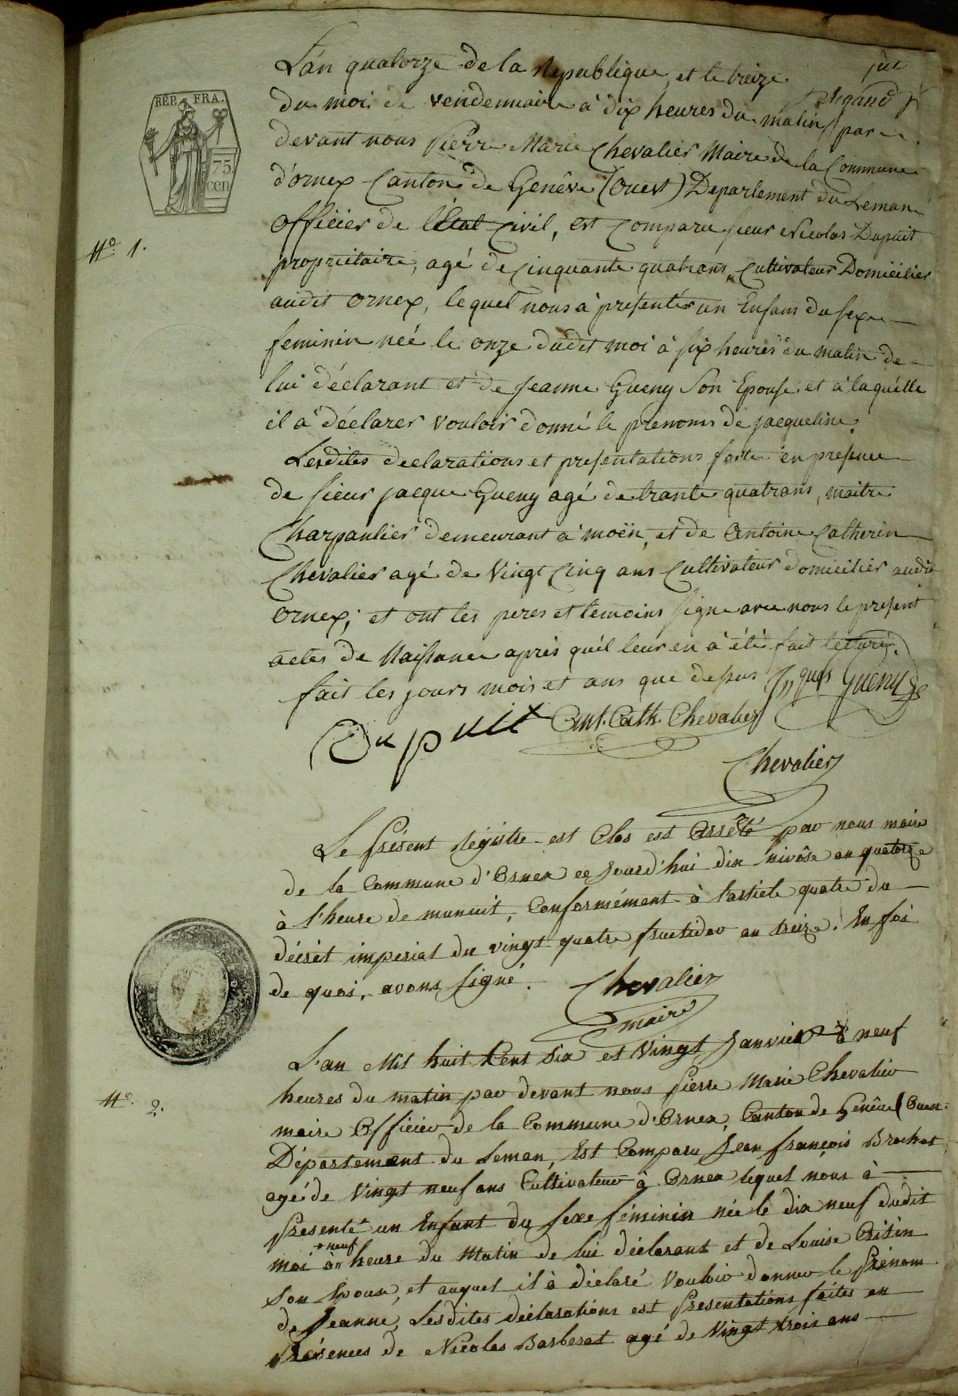 REP. FRA.
75
cen
L'an quatorze de la Republique et le treize
du mois de vendemiaire à dix heures du matin par
devant nous Pierre Marie Chevalier Maire de la Commune
d'ornex Canton de Genêve (Ouest) Departement du Leman
officier de l'État Civil, est comparu sieur Nicolas Dupuit
propriétaire, agé de cinquante quatrans, Cultivateur Domicilier
audit ornex, lequel nous à presenter un Enfans du sexe
N.º 1.
feminin née le onze dudit moi à six heures du matin de
lui déclarant et de Jeanne Gueny son Epouse et à laquelle
il à déclarer vouloir donné le prenoms de jacqueline.
Lesdites declarations et presentations faite en presence
de sieur jacque Gueny agé de trante quatrans, maitre
Charpantier demeurant à moën, et de Antoine Catherin
Chevalier agé de Vingt Cinq ans Cultivateur domicilier audit
ornex; et ont les peres et temoins signe avec nous le present
actes de Naissance après qu'il leur en à été fait lecture.
fait les jours mois et ans que dessus Jques Gueny
Dupuit Ant. Cath. Chevalier
Chevalier
Le Présent Régistre est Clos est Arrêté par nous maire
de la Commune d'Ornex ce Jourd'hui dix nivôse an quatorze
à l'heure de minuit, Conformément à l'article quatre du
décrèt impérial du vingt quatre fructidor an treize. En foi
de quoi, avons signé. Chevalier
maire
N.º 2.
L'an Mil huit Cent Six et Vingt Janvier à neuf
heures du matin par devant nous Pierre Marie Chevalier
maire Officier de la Commune d'Ornex, Canton de Genêve (Ouest
Département du Leman, Est Comparu Jean françois Brochet
agé de Vingt neuf ans Cultivateur à Ornex lequel nous à
Presenté un Enfant du sexe féminin née le dix neuf dudit
moi à neuf heure du Matin de lui déclarant et de Louise
son Epouse, et auquel il à déclaré Vouloir donner le Prénom
de Jeanne, Lesdites déclarations est Presentations faites en
Présences de Nicolas Barberat agé de Vingt trois ans